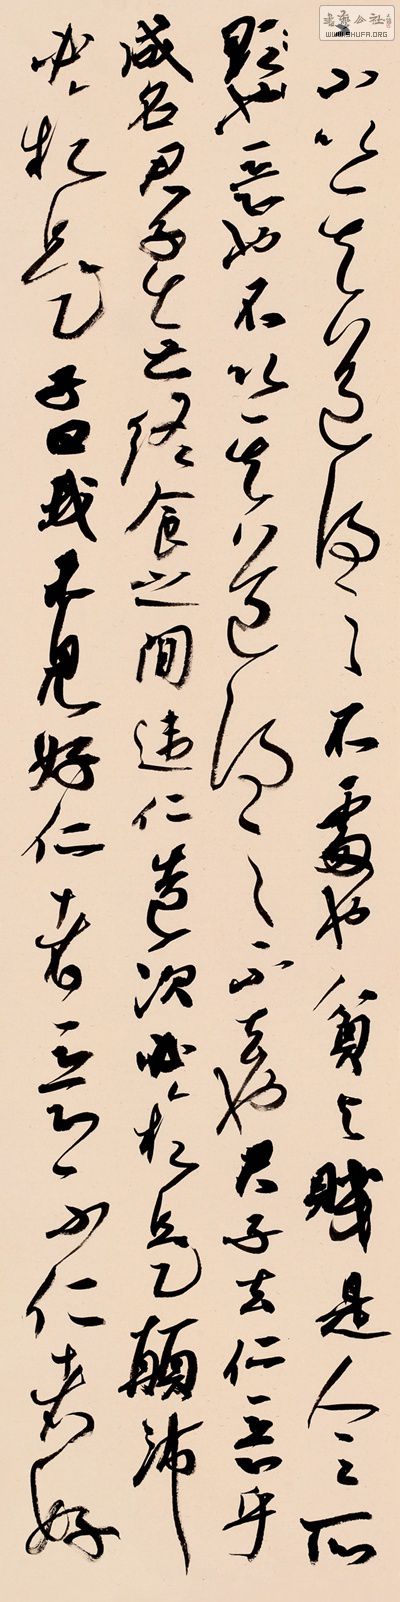 書藝公社
WWW.SHUFA.ORG
不以其道得之不處也貧與賤是人之所
惡也不以其道得之不去也君子去仁惡乎
成名君子無終食之間違仁造次必於是顛沛
必於是子曰我未見好仁者惡不仁者好